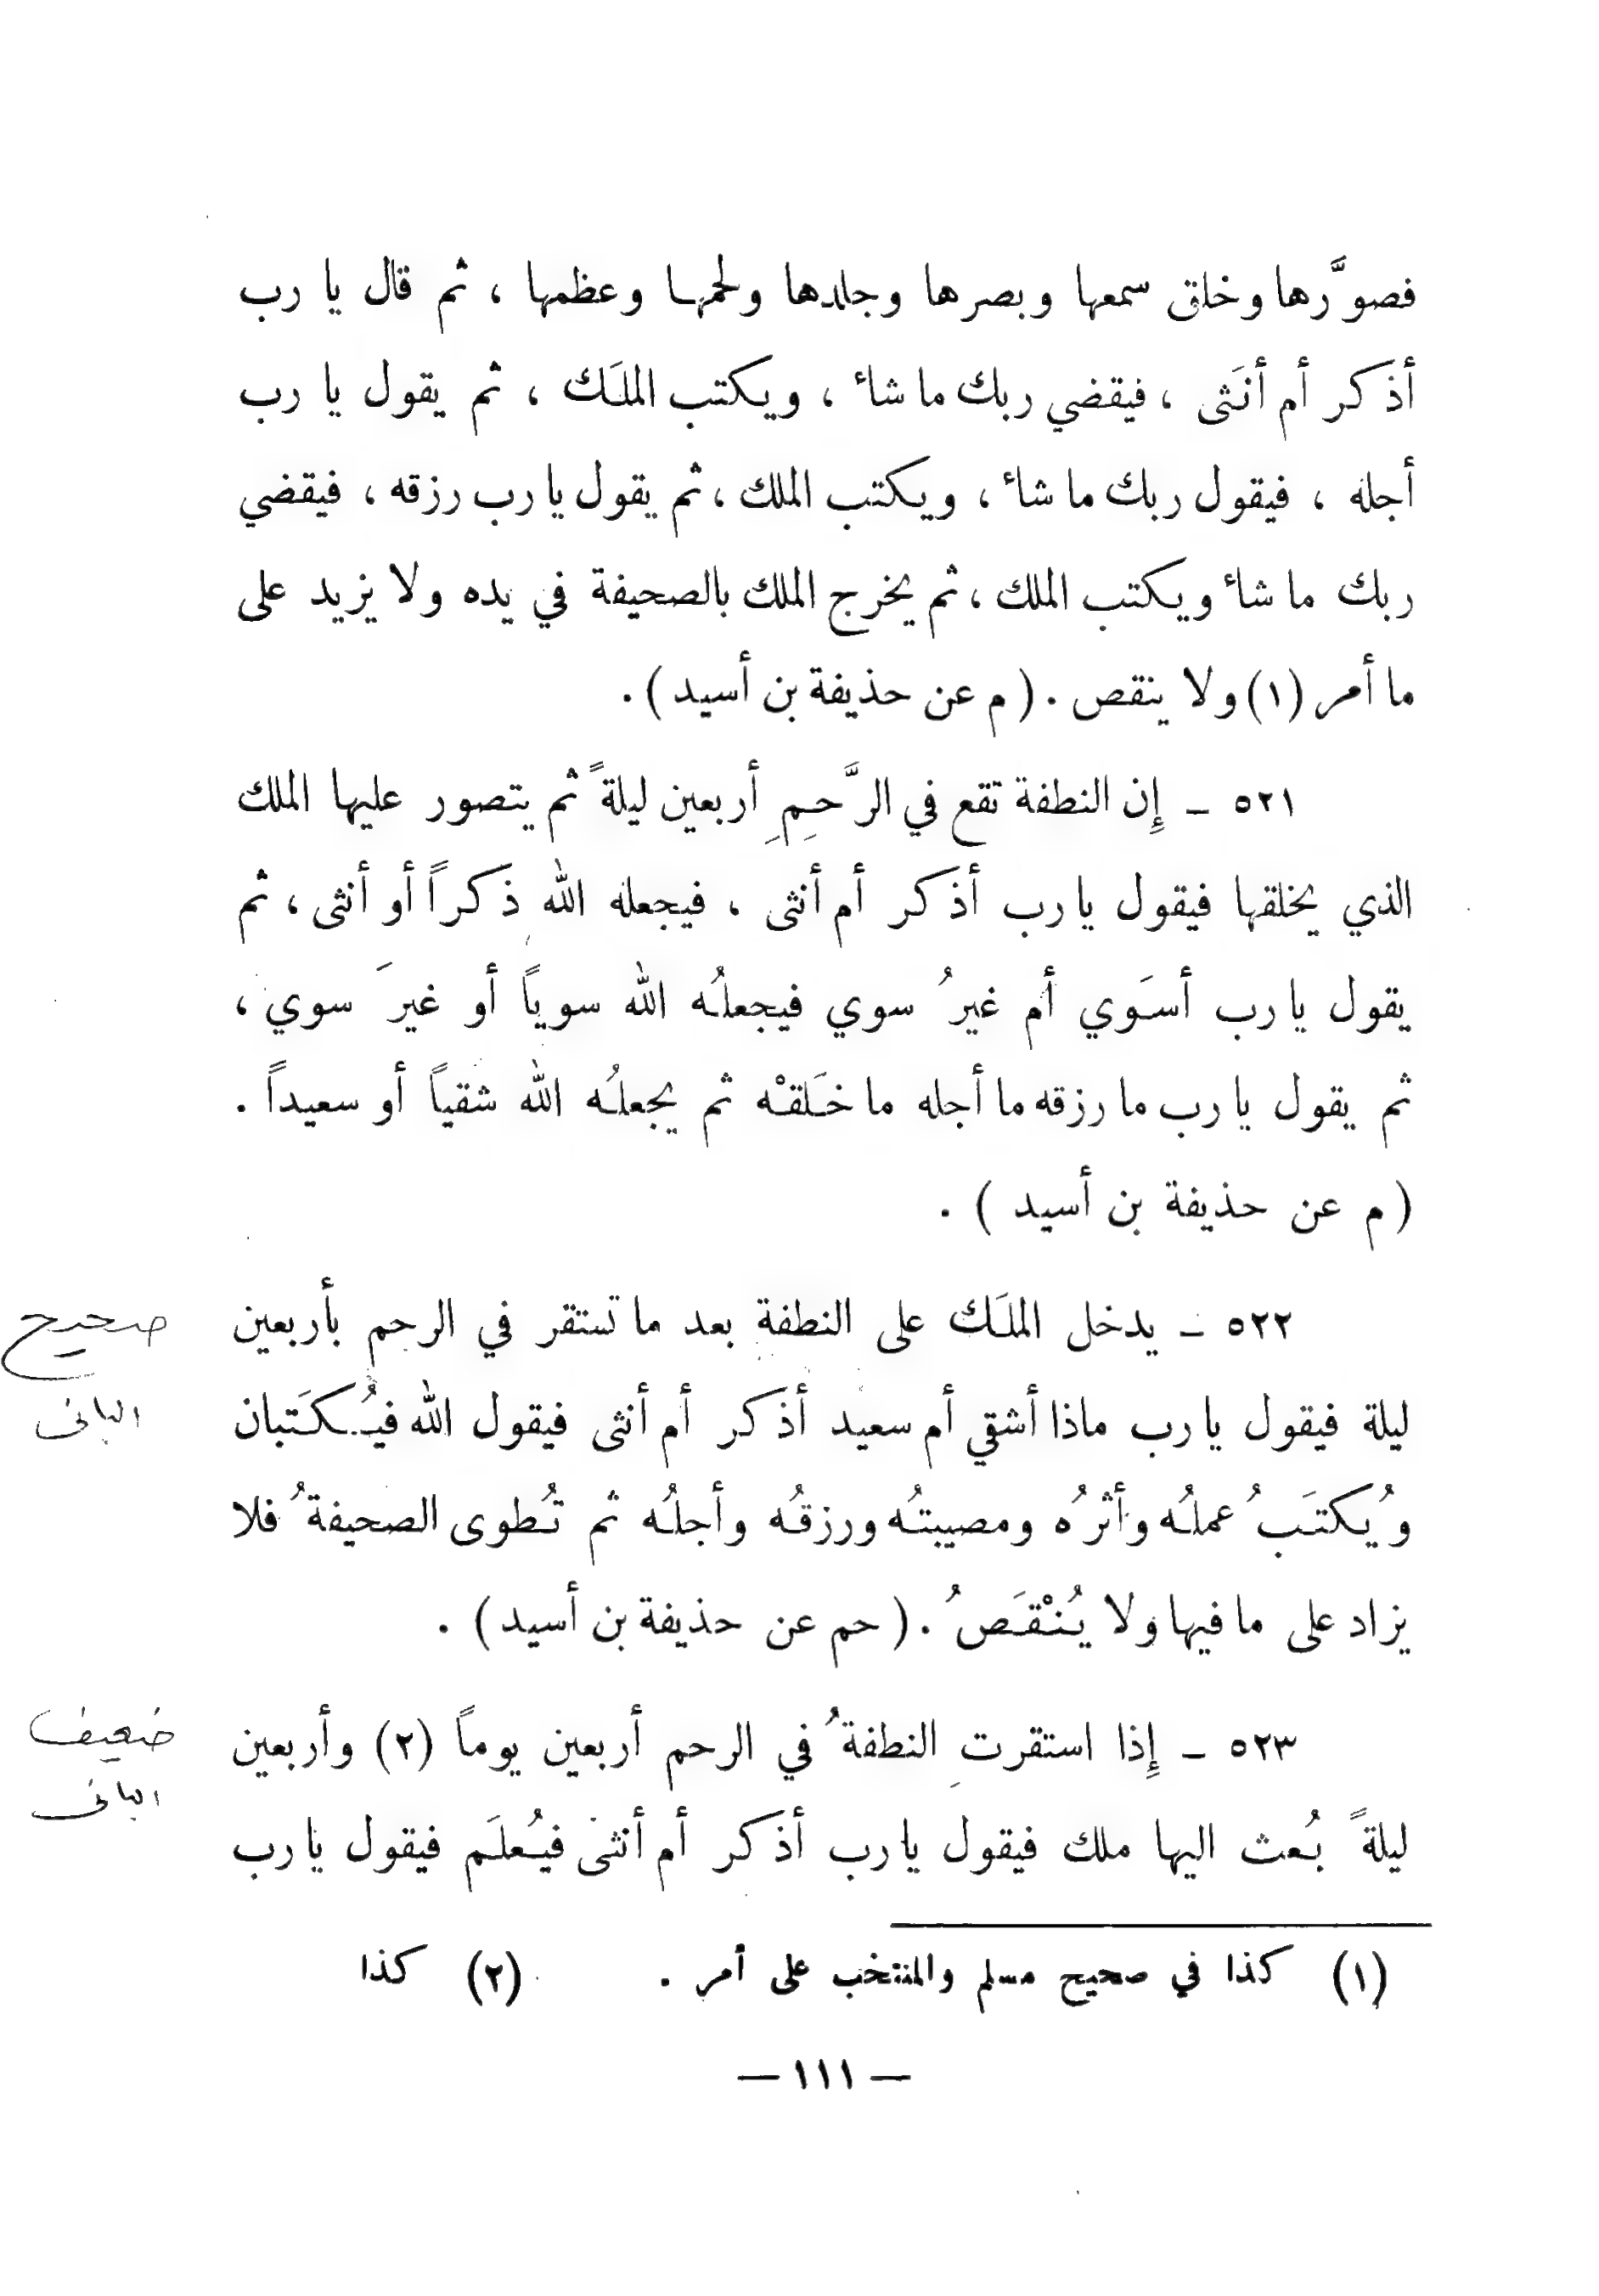 فصوَّرها وخلق سمعها وبصرها وجلدها ولحمها وعظمها ، ثم قال يا رب
أذكر أم أنَثى ، فيقضي ربك ما شاء ، ويكتب الملَك ، ثم يقول يا رب
أجله ، فيقول ربك ما شاء ، ويكتب الملك ، ثم يقول يا رب رزقه ، فيقضي
ربك ما شاء ويكتب الملك ، ثم يخرج الملك بالصحيفة في يده ولا يزيد على
ما أمر (١) ولا ينقص . ( م عن حذيفة بن أسيد ) .
٥٢١ – إِن النطفة تقع في الرَّحِمِ أربعين ليلةً ثم يتصور عليها الملك
الذي يخلقها فيقول يا رب أذكر أم أنثى ، فيجعله الله ذكراً أو أنثى ، ثم
يقول يا رب أسَوي أم غيرُ سوي فيجعلُه الله سوياً أو غيرَ سوي ،
ثم يقول يا رب ما رزقه ما أجله ما خَلقْه ثم يجعلُه الله شقياً أو سعيداً .
( م عن حذيفة بن أسيد ) .
٥٢٢ – يدخل الملَك على النطفة بعد ما تستقر في الرحم بأربعين
صحيح
ليلة فيقول يا رب ماذا أشقي أم سعيد أذكر أم أنثى فيقول الله فيُكتَبان
البانى
وُيكتَبُ عملُه وأثرُه ومصيبتُه ورزقُه وأجلُه ثم تُطوى الصحيفةُ فلا
يزاد على ما فيها ولا يُنْقَصُ . ( حم عن حذيفة بن أسيد ) .
٥٢٣ – إِذا استقرتِ النطفةُ في الرحم أربعين يوماً (٢) وأربعين
ضعيف
البانى
ليلةً بُعث اليها ملك فيقول يا رب أذكر أم أنثى فيُعلَم فيقول يا رب
(١) كذا في صحيح مسلم والمنتخب على أمر . (٢) كذا
— ١١١ —